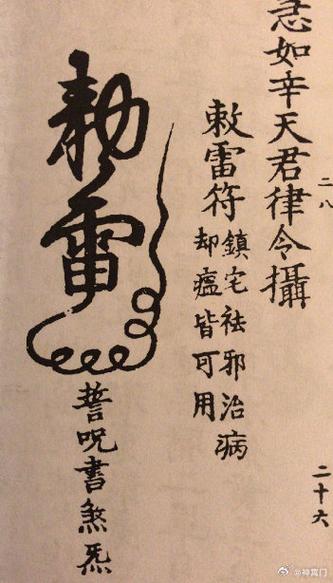 急如辛天君律令攝
二八
敕雷符
鎮宅祛邪治病
却瘟皆可用
勅雷
誓咒書煞炁
二十六
@神霄门